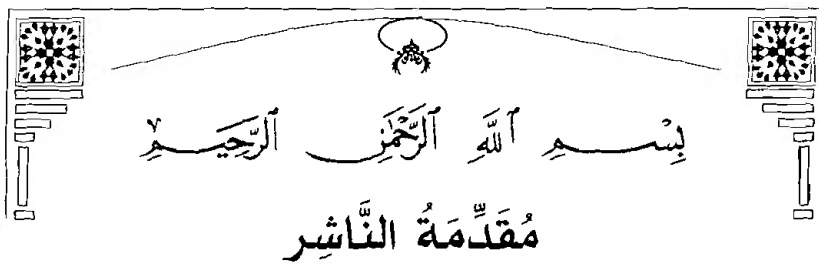 بِسْمِ ٱللَّهِ ٱلرَّحْمَٰنِ ٱلرَّحِيمِ
مُقَدِّمَةُ النَّاشِر